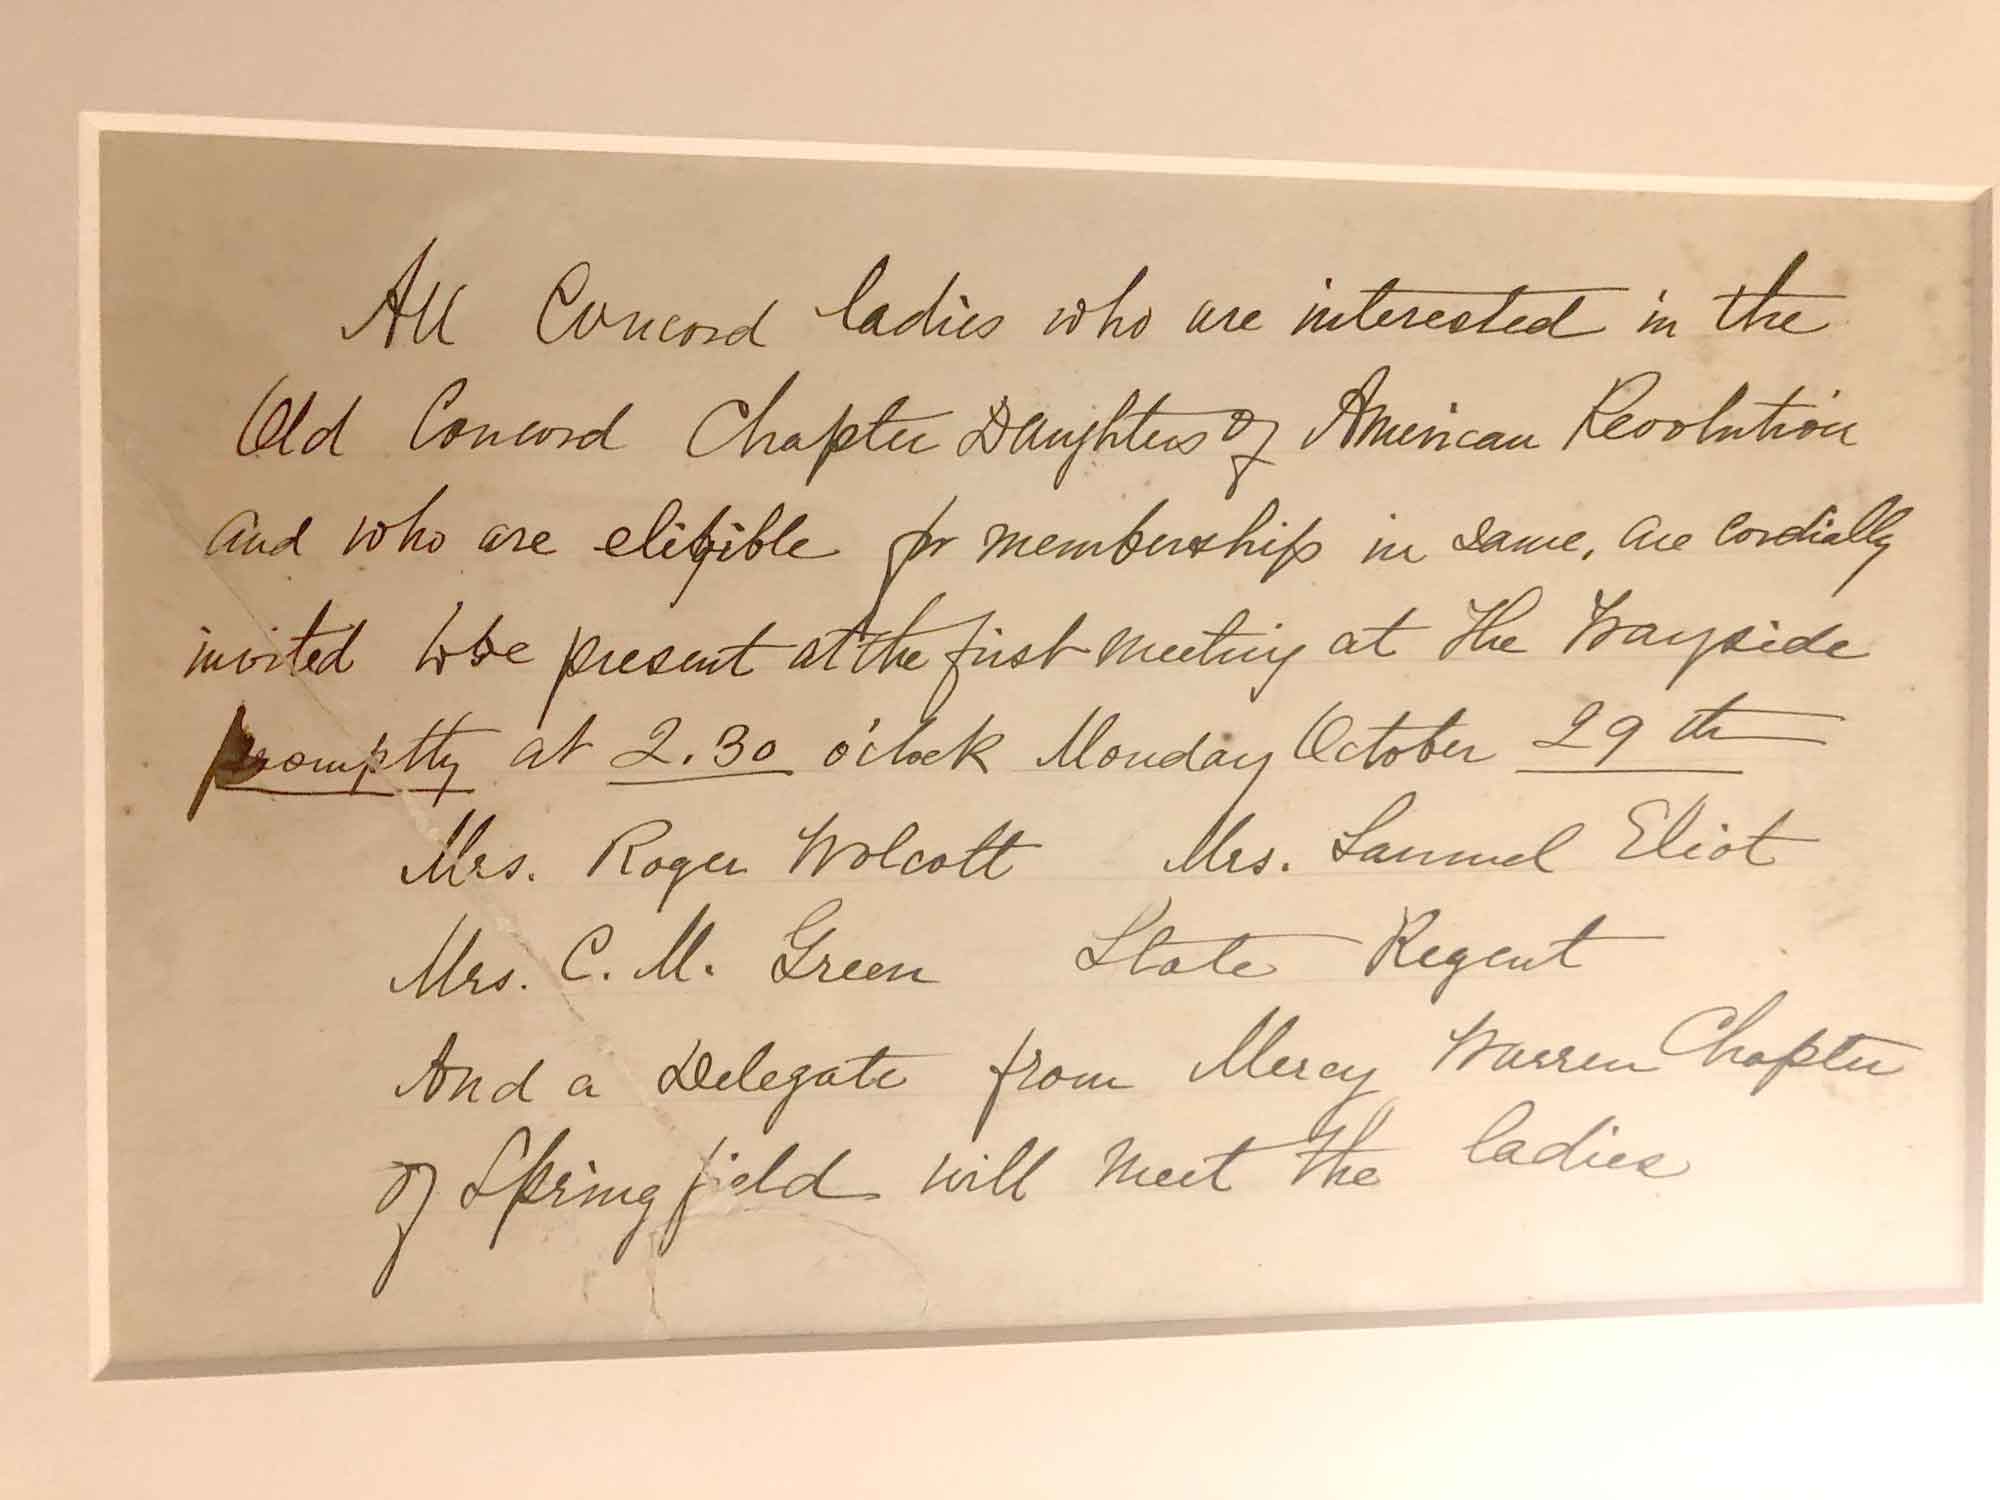 All Concord ladies who are interested in the
Old Concord Chapter Daughters of American Revolution
and who are eligible for membership in same, are cordially
invited to be present at the first meeting at The Wayside
promptly at 2.30 o'clock Monday October 29th
Mrs. Roger Wolcott Mrs. Samuel Eliot
Mrs. C. M. Green State Regent
And a Delegate from Mercy Warren Chapter
of Springfield will meet the ladies